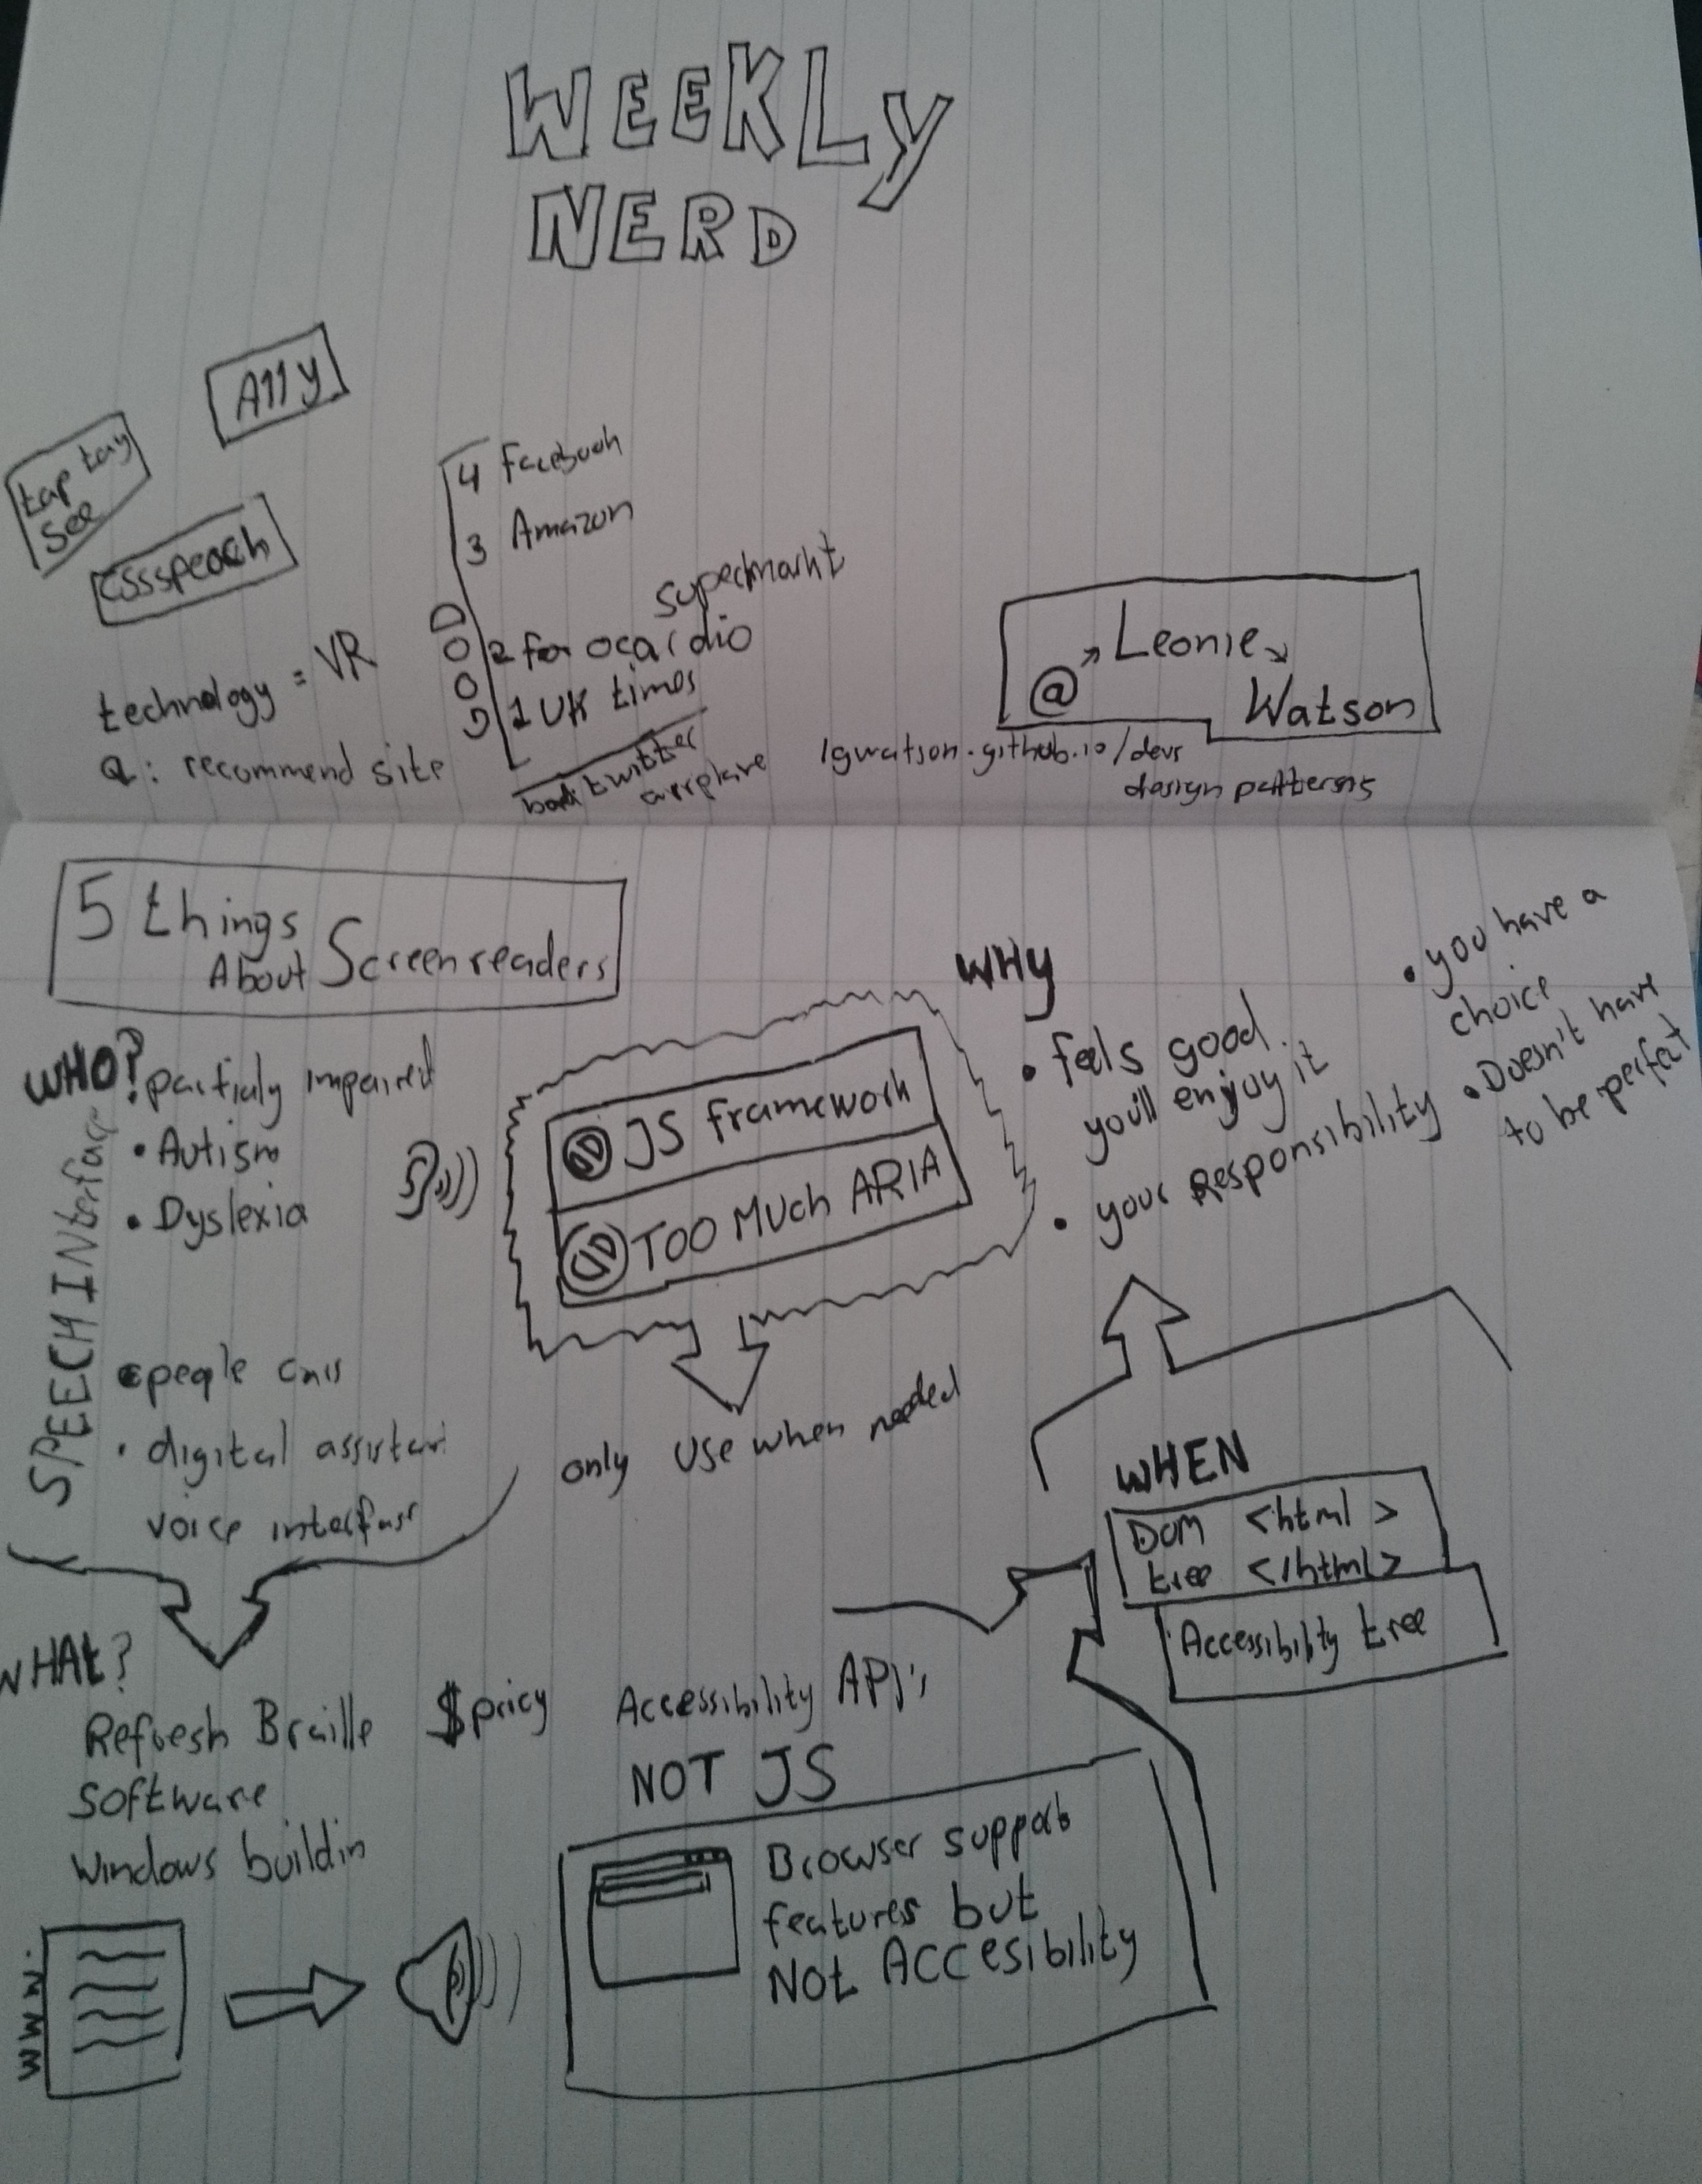 WEEKLY
NERD
A11y
tap tay
See
CSSspeach
technology = VR
Q: recommend site
4 Facebook
3 Amazon
supermarkt
2 for ocardio
1 UK times
twitter
airplane
@ Leonie
Watson
lgwatson.github.io/devs
design patterns
5 things
About Screenreaders
WHO?
partialy impaired
• Autism
• Dyslexia
SPEECH INterface
people
• digital assistant
voice interface
JS framework
TOO MUch ARIA
only Use when needed
WHY
• feels good.
you'll enjoy it
• your Responsibility
• you have a
choice
• Doesn't have
to be perfect
WHEN
DOM <html >
tree </html>
Accessibility tree
WHAt?
Refresh Braille $pricy
Software
Windows buildin
WWW.
Accessibility API's
NOT JS
Browser support
features but
Not ACCesibility